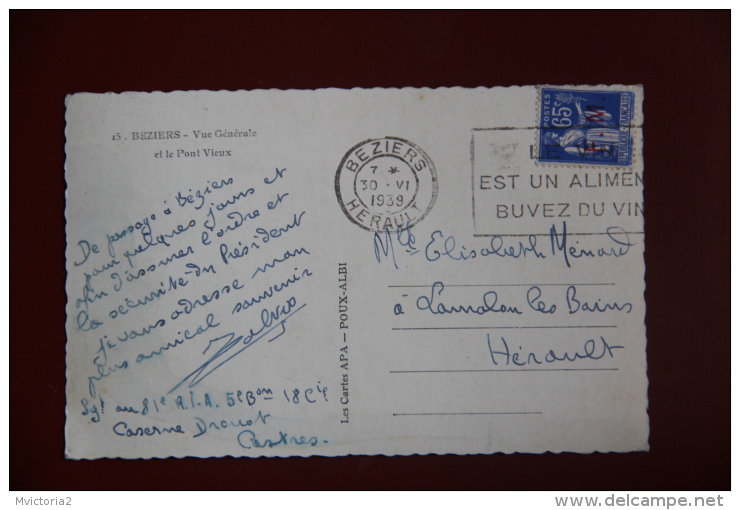 15. BEZIERS - Vue Générale
et le Pont Vieux
De passage à Béziers
pour quelques jours et
afin d'assurer l'ordre et
la sécurité du Président
je vous adresse mon
plus amical souvenir
Sgt au 81e R.I.A. 5e Bon 18 Cie
Caserne Drouot
Castres.
Les Cartes APA — POUX-ALBI
BEZIERS
7 *
30 · VI
1939
HERAULT
EST UN ALIMEN
BUVEZ DU VIN
POSTES
65c
F. M.
REPUBLIQUE FRANCAISE
Mlle Elisabeth Ménard
à Lamalou les Bains
Hérault
Mvictoria2
www.delcampe.net